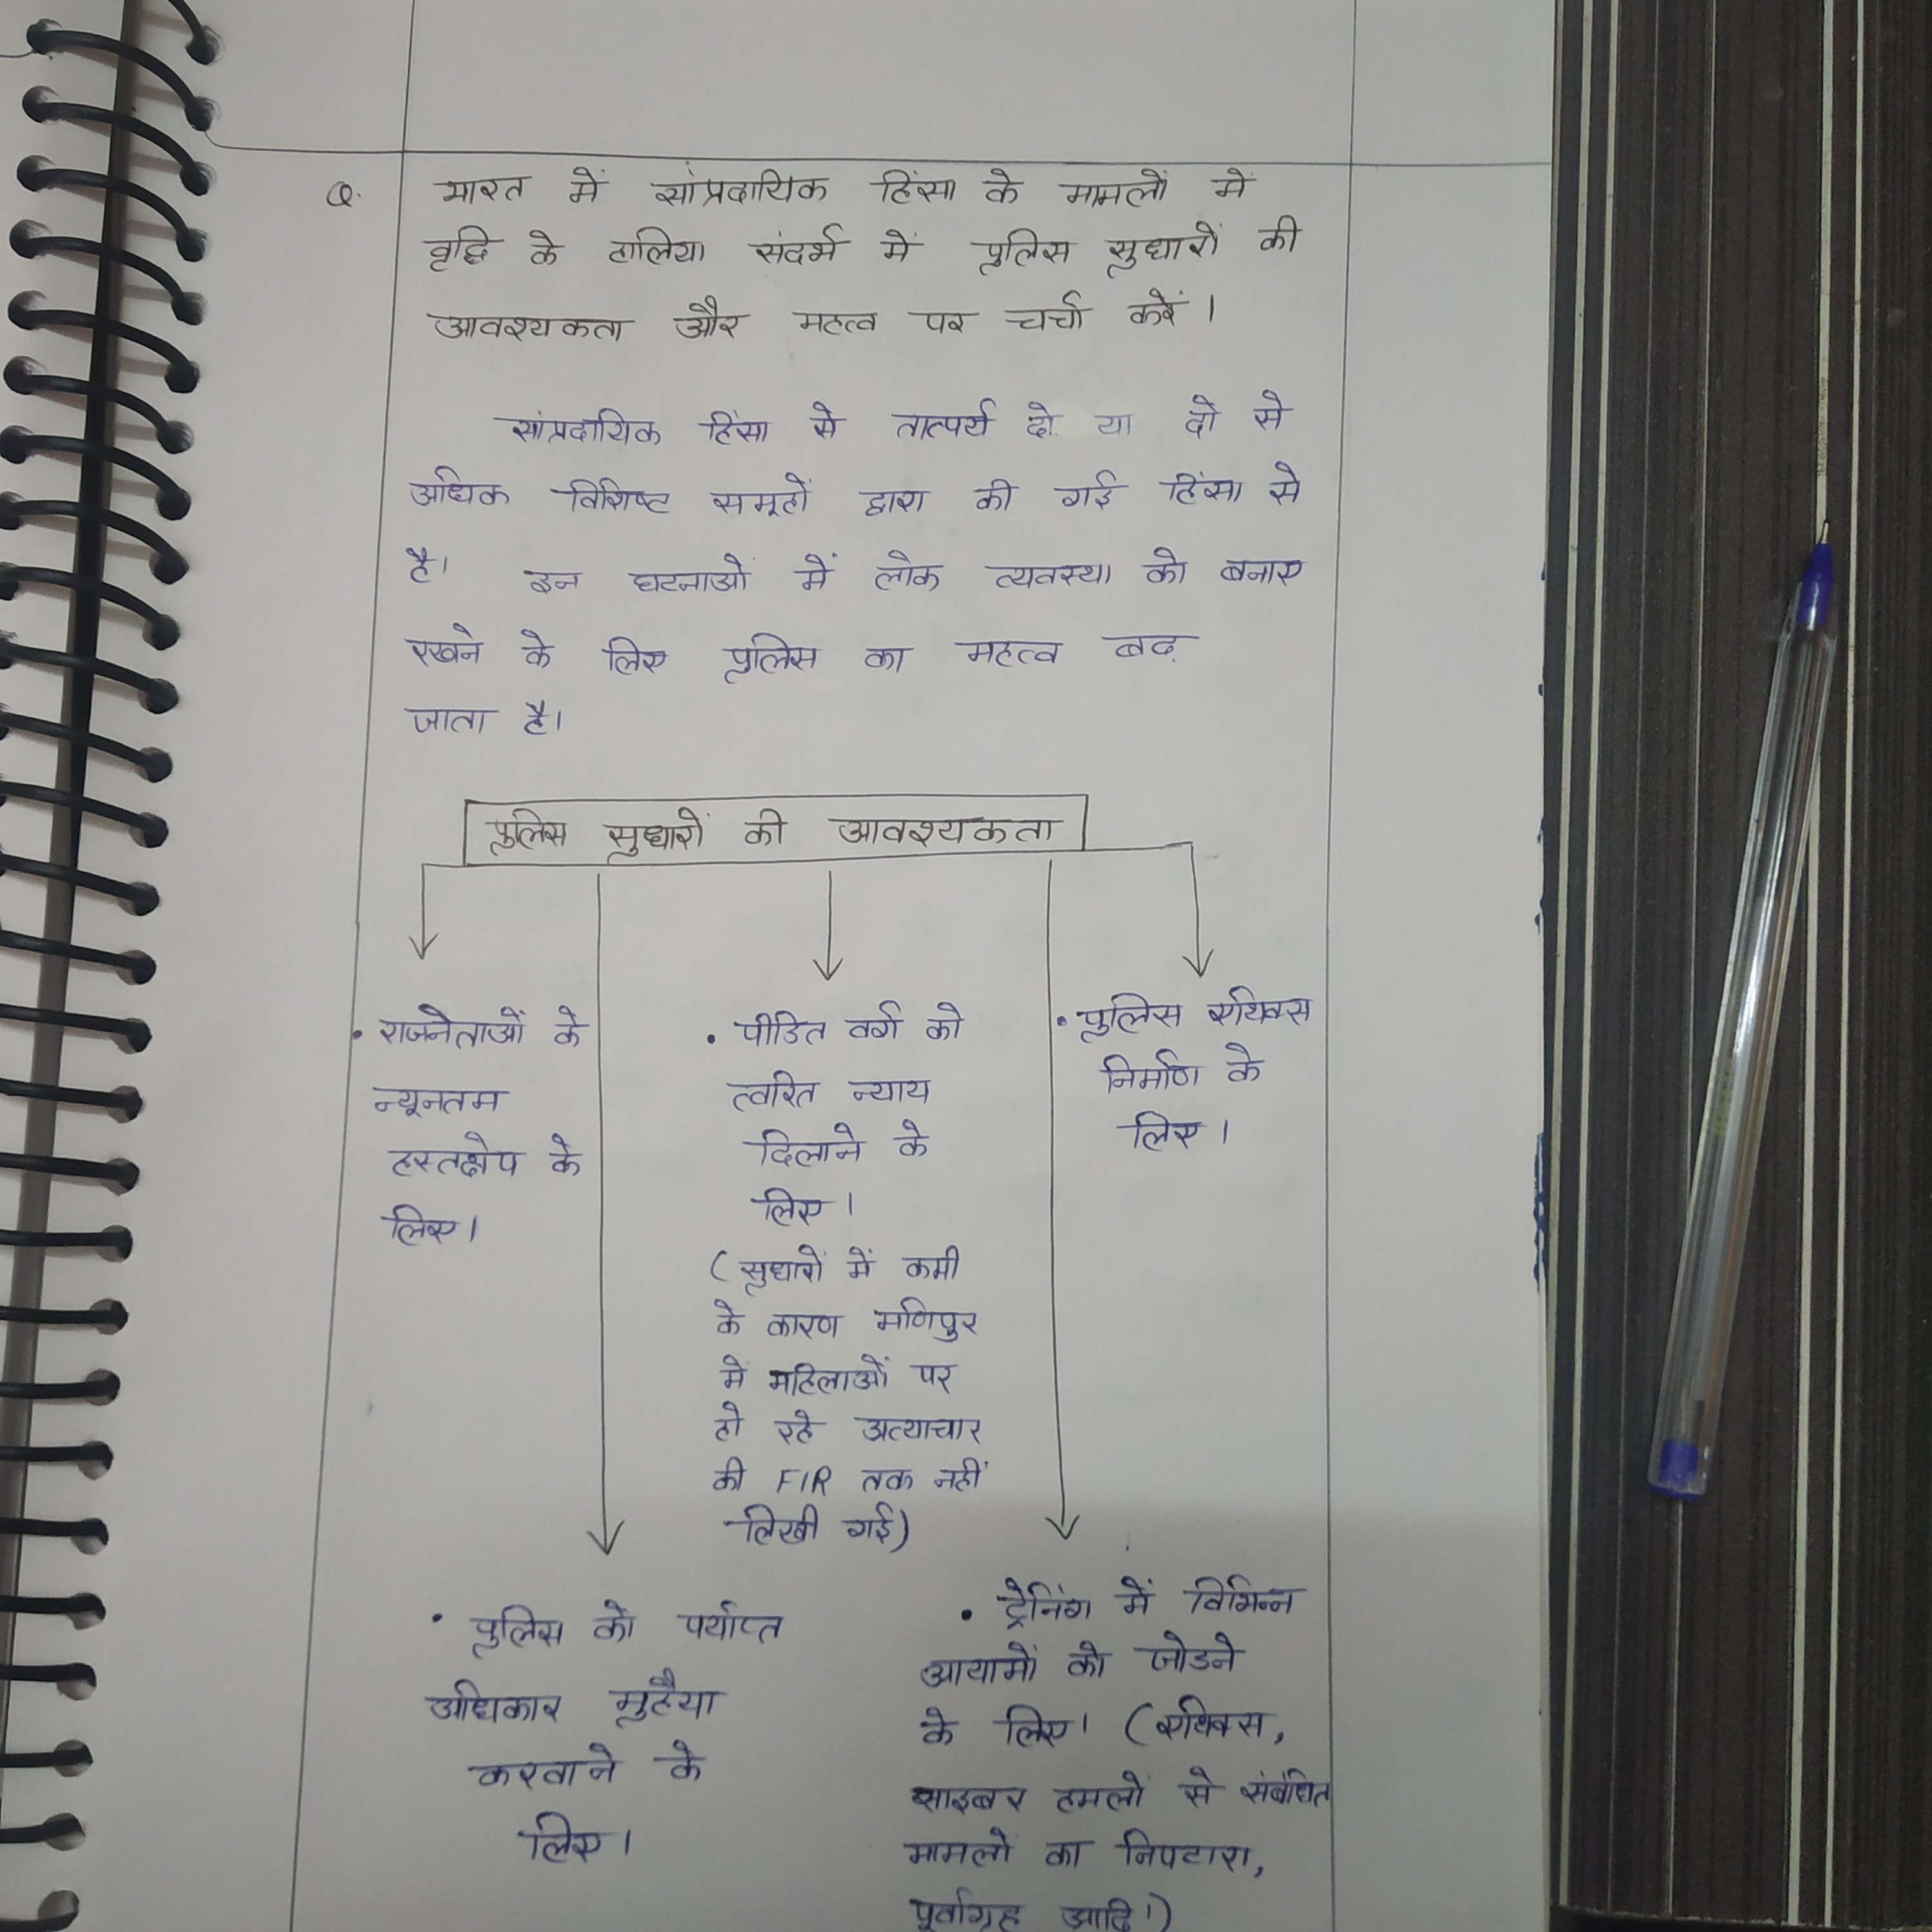 Q. भारत में सांप्रदायिक हिंसा के मामलों में
वृद्धि के हालिया संदर्भ में पुलिस सुधारों की
आवश्यकता और महत्व पर चर्चा करें।
सांप्रदायिक हिंसा से तात्पर्य दो या दो से
अधिक विशिष्ट समूहों द्वारा की गई हिंसा से
है। इन घटनाओं में लोक व्यवस्था को बनाए
रखने के लिए पुलिस का महत्व बढ़
जाता है।
पुलिस सुधारों की आवश्यकता
• राजनेताओं के
न्यूनतम
हस्तक्षेप के
लिए।
• पीडित वर्ग को
त्वरित न्याय
दिलाने के
लिए।
(सुधारों में कमी
के कारण मणिपुर
में महिलाओं पर
हो रहे अत्याचार
की FIR तक नहीं
लिखी गई)
• पुलिस एथिक्स
निर्माण के
लिए।
• पुलिस को पर्याप्त
अधिकार मुहैया
करवाने के
लिए।
• ट्रेनिंग में विभिन्न
आयामों को जोडने
के लिए। (एथिक्स,
साइबर हमलों से संबंधित
मामलों का निपटारा,
पूर्वाग्रह आदि।)